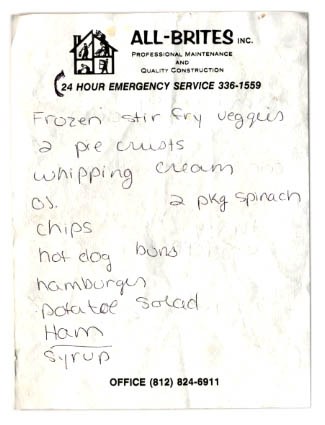 ALL-BRITES INC.
PROFESSIONAL MAINTENANCE
AND
QUALITY CONSTRUCTION
24 HOUR EMERGENCY SERVICE 336-1559
Frozen stir fry veggies
2 pie crusts
whipping cream
OJ. 2 pkg spinach
chips
hot dog buns
hamburger
potatoe salad
Ham
syrup
OFFICE (812) 824-6911